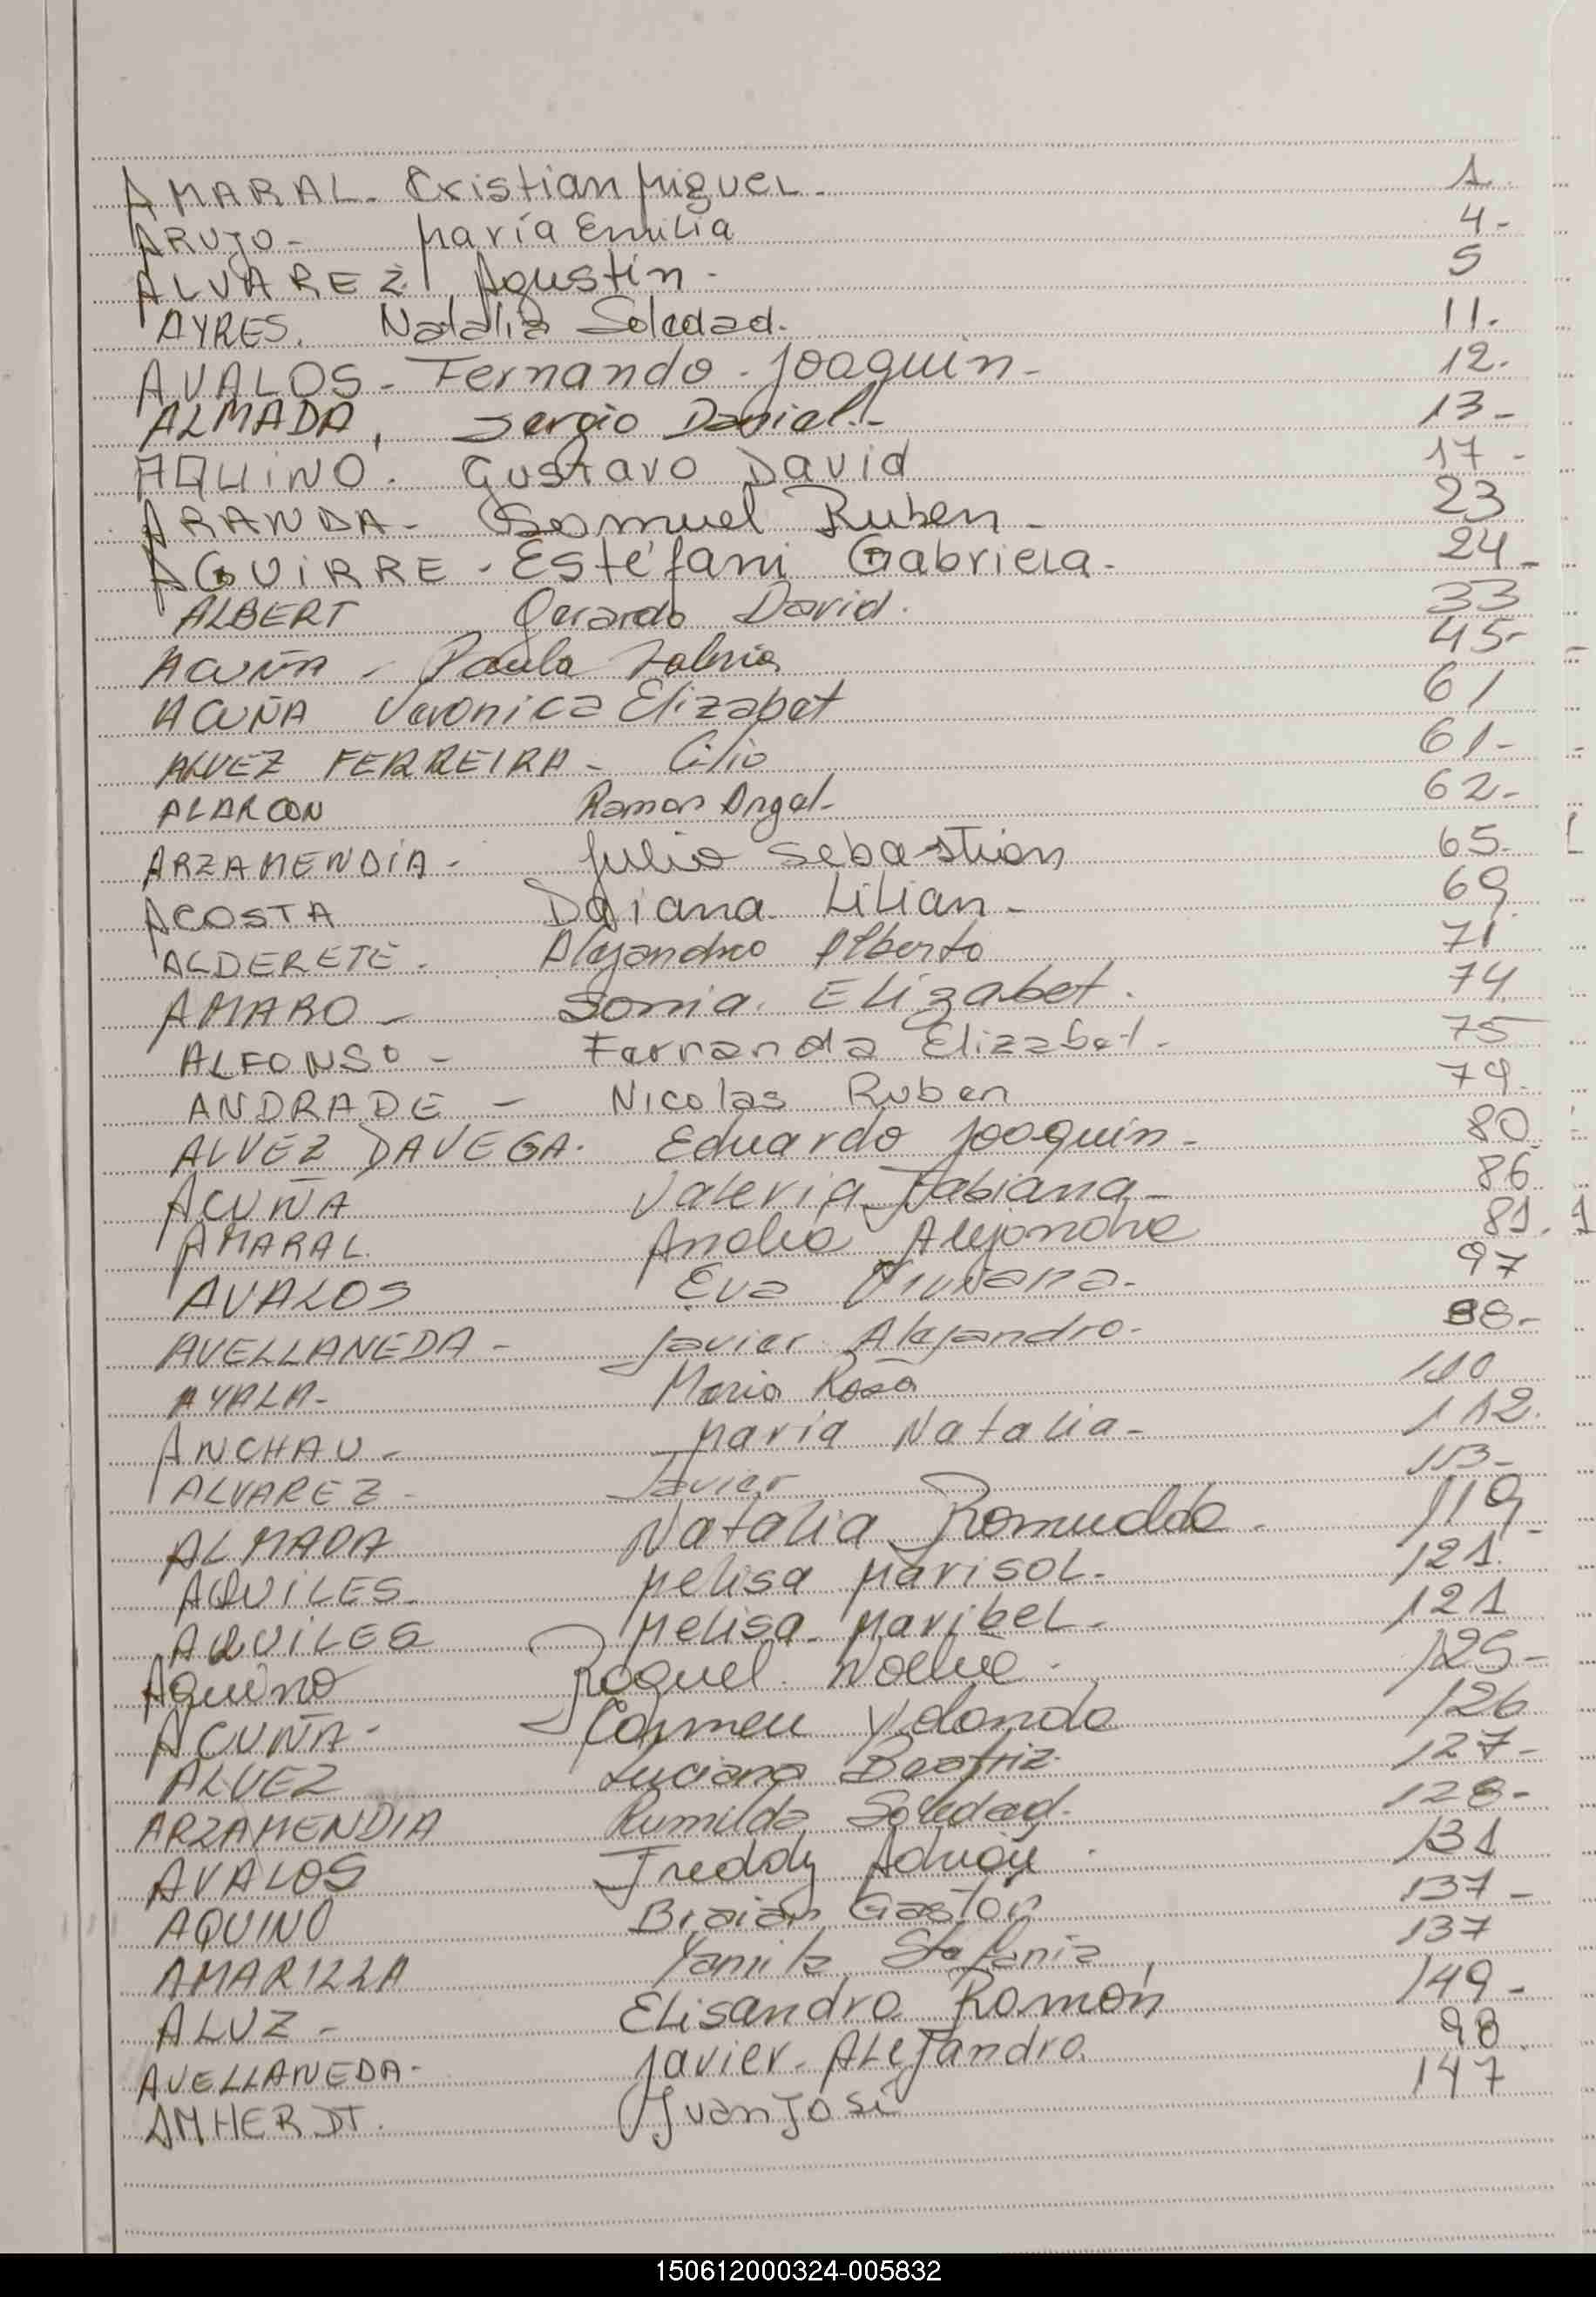 AMARAL- Cristian Miguel- 1.
ARUJO- María Emilia 4-
ALVAREZ Agustín- 5
AYRES. Natalia Soledad. 11.
AVALOS- Fernando-Joaquin- 12.
ALMADA, Sergio Daniel.- 13-
AQUINO. Gustavo David 17-
ARANDA- Samuel Ruben- 23
AGUIRRE-Estéfani Gabriela- 24-
ALBERT Gerardo David. 33
ACUÑA- Paula 45-
ACUÑA Veronica Elizabet 61
ALVEZ FERREIRA- 61-
ALARCON Ramon Angel- 62-
ARZAMENDÍA- Julio Sebastian 65-
ACOSTA Daiana Lilian- 69
ALDERETE. Alejandro Alberto 71
AMARO- Sonia. Elizabet. 74
ALFONSO- Fernanda Elizabet- 75
ANDRADE- Nicolas Ruben 79.
ALVEZ DAVEGA. Eduardo Joaquin- 80.
ACUÑA Valeria Fabiana- 86
AMARAL Analia Alejandra 81.
AVALOS Eva Viviana- 97
AVELLANEDA- Javier Alejandro- 98-
AYALA- Maria Rosa 110
ANCHAU- Maria Natalia- 112.
ALVAREZ- Javier 113-
ALMADA Natalia Romualda- 119
AQUILES- Melisa Marisol- 121.
AQUILES Melisa Maribel- 121
Aquino Raquel Noelia. 125-
ACUÑA- Carmen Yolanda 126
ALVEZ Luciana Beatriz- 127-
ARZAMENDIA Rumilda Soledad- 128-
AVALOS Freddy Adrián. 131
AQUINO Braian Gastón 137-
AMARILLA Yamila Stefania 137
ALUZ- Elisandro Ramón 149-
AVELLANEDA- Javier-Alejandro. 98
AMHERDT. Juan José 147
150612000324-005832